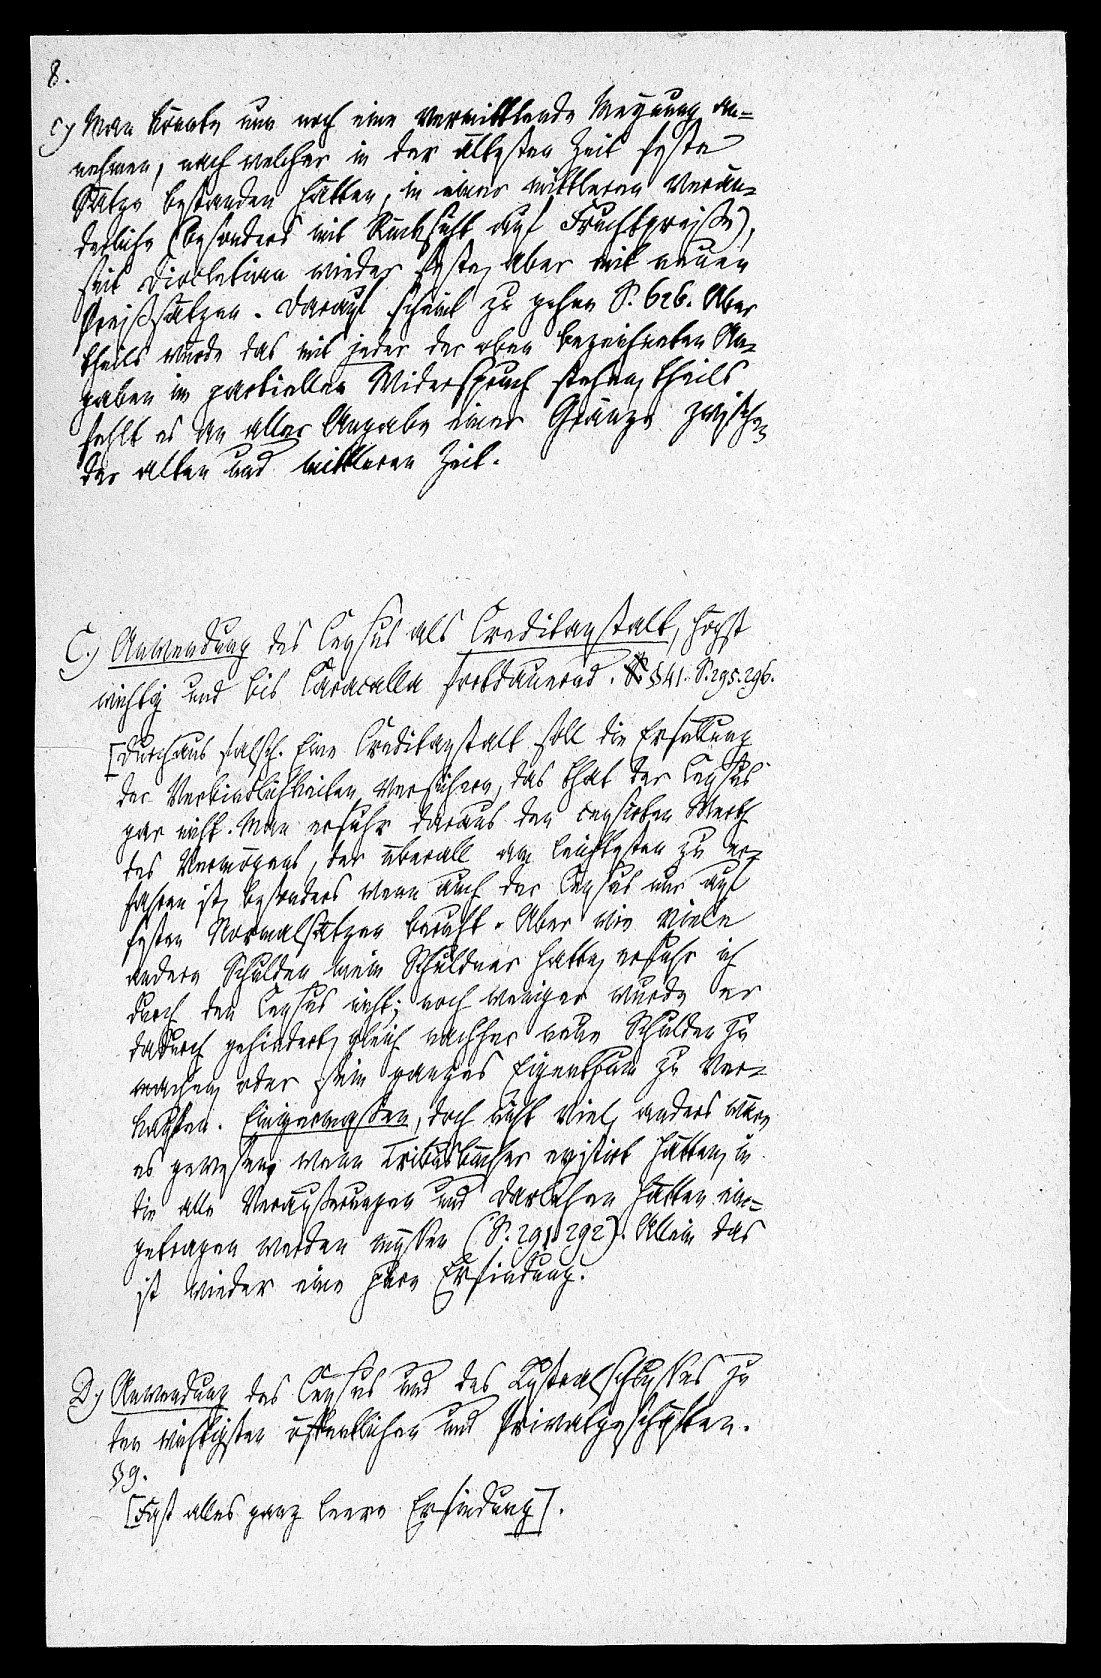 8.
c) Man könnte nun noch eine vermittlende Meynung an-
nehmen, nach welcher in der ältesten Zeit feste
Sätze bestanden hätten, in einer mittleren verän-
derliche (besonders mit Rücksicht auf Fruchtpreise),
seit Diocletian wieder feste, aber mit neuen
Preißsätzen. Darauf scheint zu gehen S. 626. Aber
theils würde das mit jeder der oben bezeichneten An-
gaben in partiellen Widerspruch stehen, theils
fehlt es an aller Angabe einer Gränze zwischen
der alten und mittleren Zeit.
C.) Anwendung des Census als Creditanstalt, höchst
wichtig und bis Caracalla fortdauernd. § 41. S. 295. 296.
[Durchaus falsch. Eine Creditanstalt soll die Erfüllung
der Verbindlichkeiten versichern, das that der Census
gar nicht. Man erfuhr daraus den censirten Werth
des Vermögens, der überall am leichtesten zu er-
fahren ist, besonders wenn auch der Census nur auf
festen Normalsätzen beruht. Aber wie viele
andere Schulden mein Schuldner hatte, erfuhr ich
durch den Census nicht; noch weniger wurde er
dadurch gehindert, gleich nachher neue Schulden zu
machen, oder sein ganzes Eigenthum zu ver-
kaufen. Einigermaßen, doch nicht viel, anders wäre
es gewesen, wenn Tribusbücher existirt hätten, in
die alle Veräußerungen und Darlehen hätten ein-
getragen werden müssen (S. 291. 292). Allein das
ist wieder eine Erfindung.
D.) Anwendung des Census und des Lustralschlusses zu
den wichtigsten öffentlichen und Privatgeschäften.
§ 9.
[Fast alles ganz leere Erfindung].